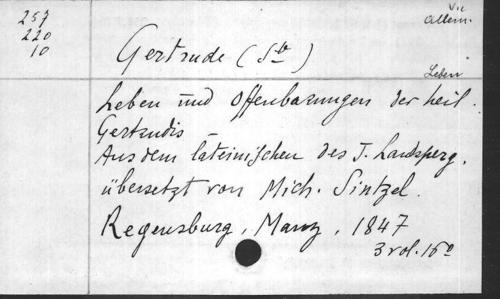 257
220
10
Vie
allem.
Gertrude (Ste)
Leben
Leben und Offenbarungen der heil.
Gertrudis
Aus dem lateinischen des J. Landsperg.
übersetzt von Mich. Sintzel.
Regensburg, Manz, 1847
3 vol. 16o